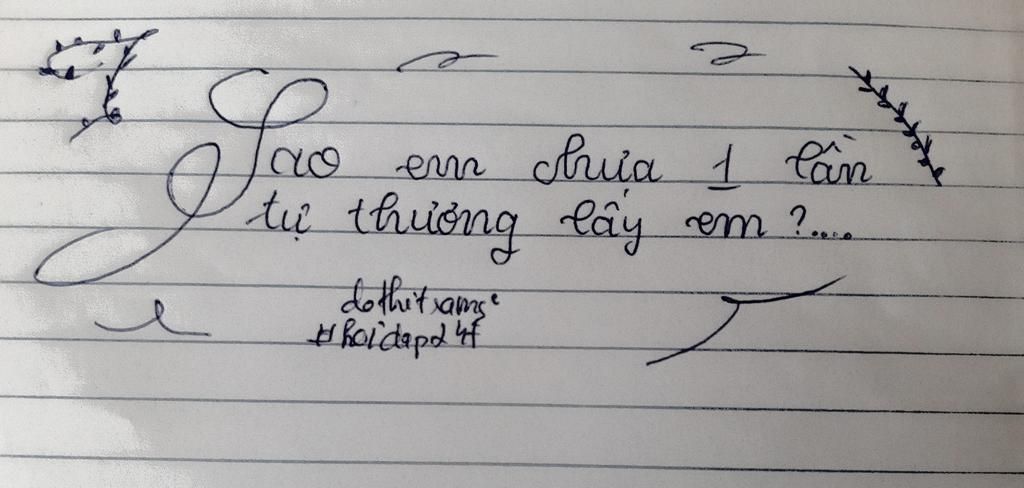 Sao em chưa 1 lần
tự thương lấy em ?....
#hoidap247